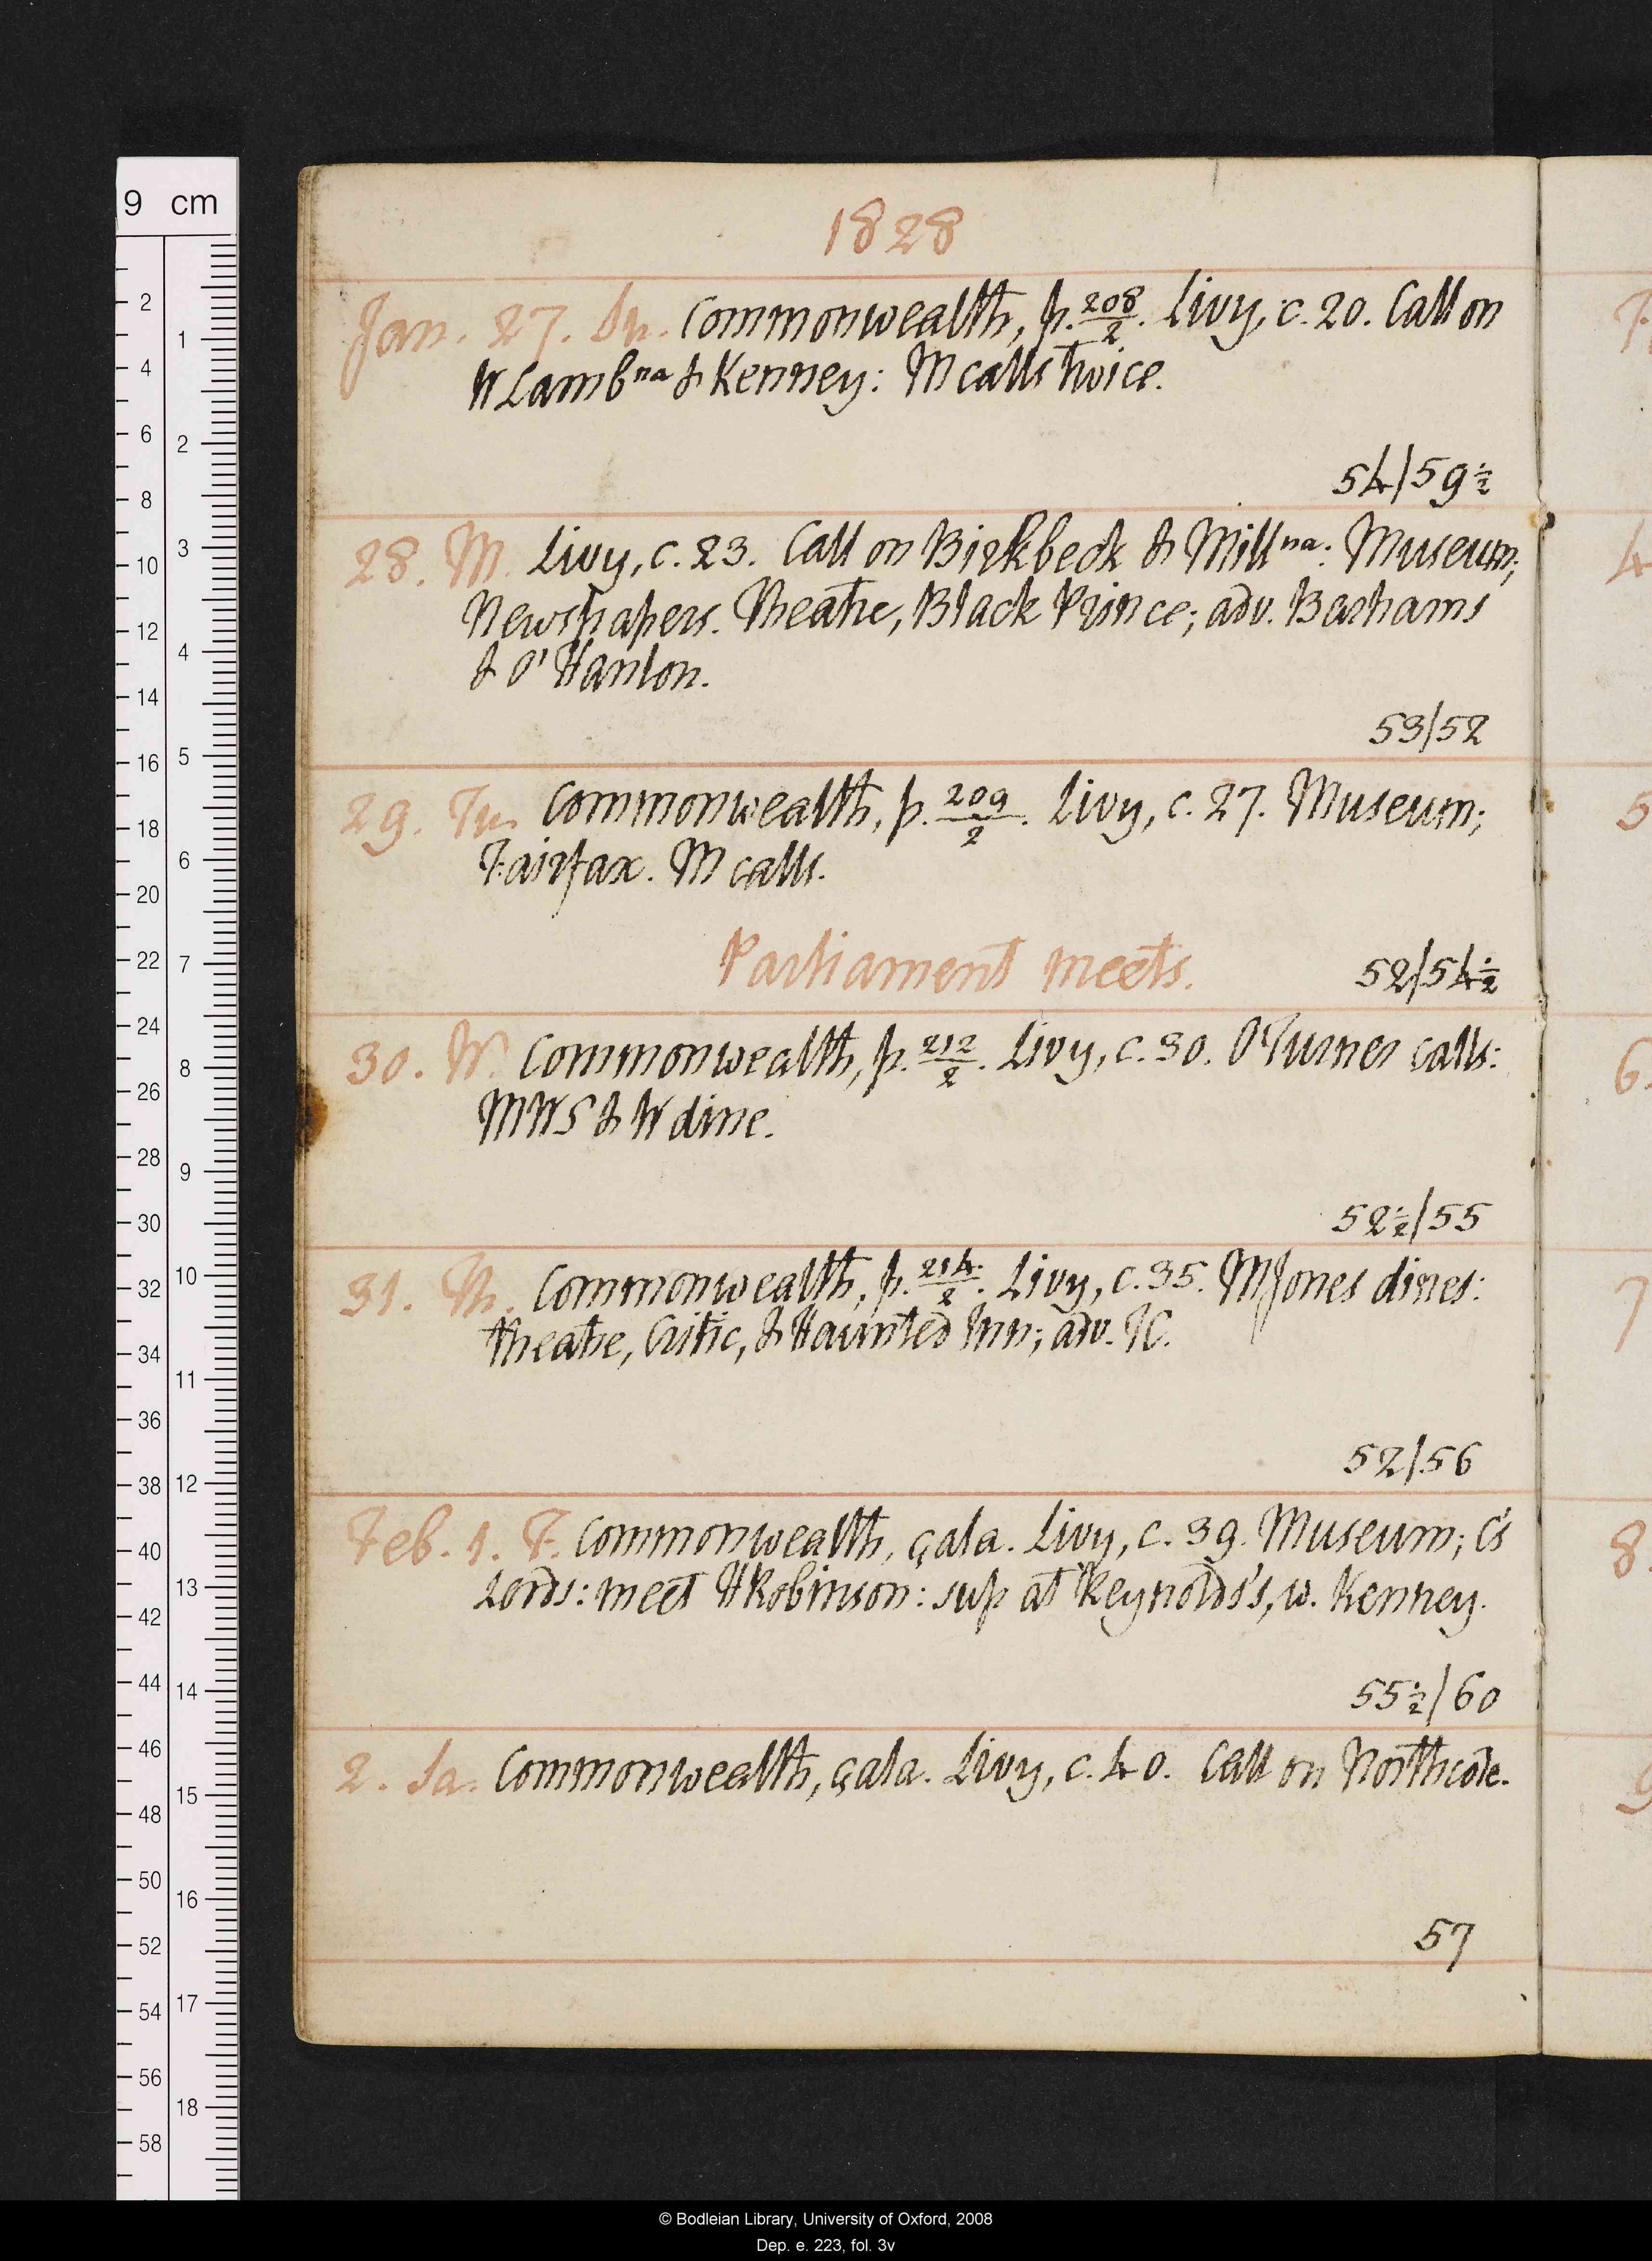 1828
Jan. 27. Su. Commonwealth, p. 208/2. Livy, c. 20. Call on
W Lamb na & Kenney: M calls twice.
54/59½
28. M. Livy, c. 23. Call on Birkbeck & Mill na: Museum;
Newspapers. Theatre, Black Prince; adv. Barhams
& O'Hanlon.
53/52
29. Tu. Commonwealth, p. 209/2. Livy, c. 27. Museum;
Fairfax. M calls.
Parliament meets.
52/54½
30. W. Commonwealth, p. 212/2. Livy, c. 30. O'Turner calls:
MWS & W dine.
52½/55
31. Th. Commonwealth, p. 214/2. Livy, c. 35. M Jones dines:
theatre, Critic, & Haunted Inn; adv. JC.
52/56
Feb. 1. F. Commonwealth, çala. Livy, c. 39. Museum; C's
Lords: meet HRobinson: sup at Reynolds's, w. Kenney.
55½/60
2. Sa. Commonwealth, çala. Livy, c. 40. Call on Northcote.
57
9 cm
2
1
4
6
2
8
10
3
12
4
14
16
5
18
6
20
22
7
24
8
26
28
9
30
32
10
34
11
36
38
12
40
13
42
44
14
46
15
48
50
16
52
54
17
56
18
58
4
5
6.
7
8.
9
© Bodleian Library, University of Oxford, 2008
Dep. e. 223, fol. 3v